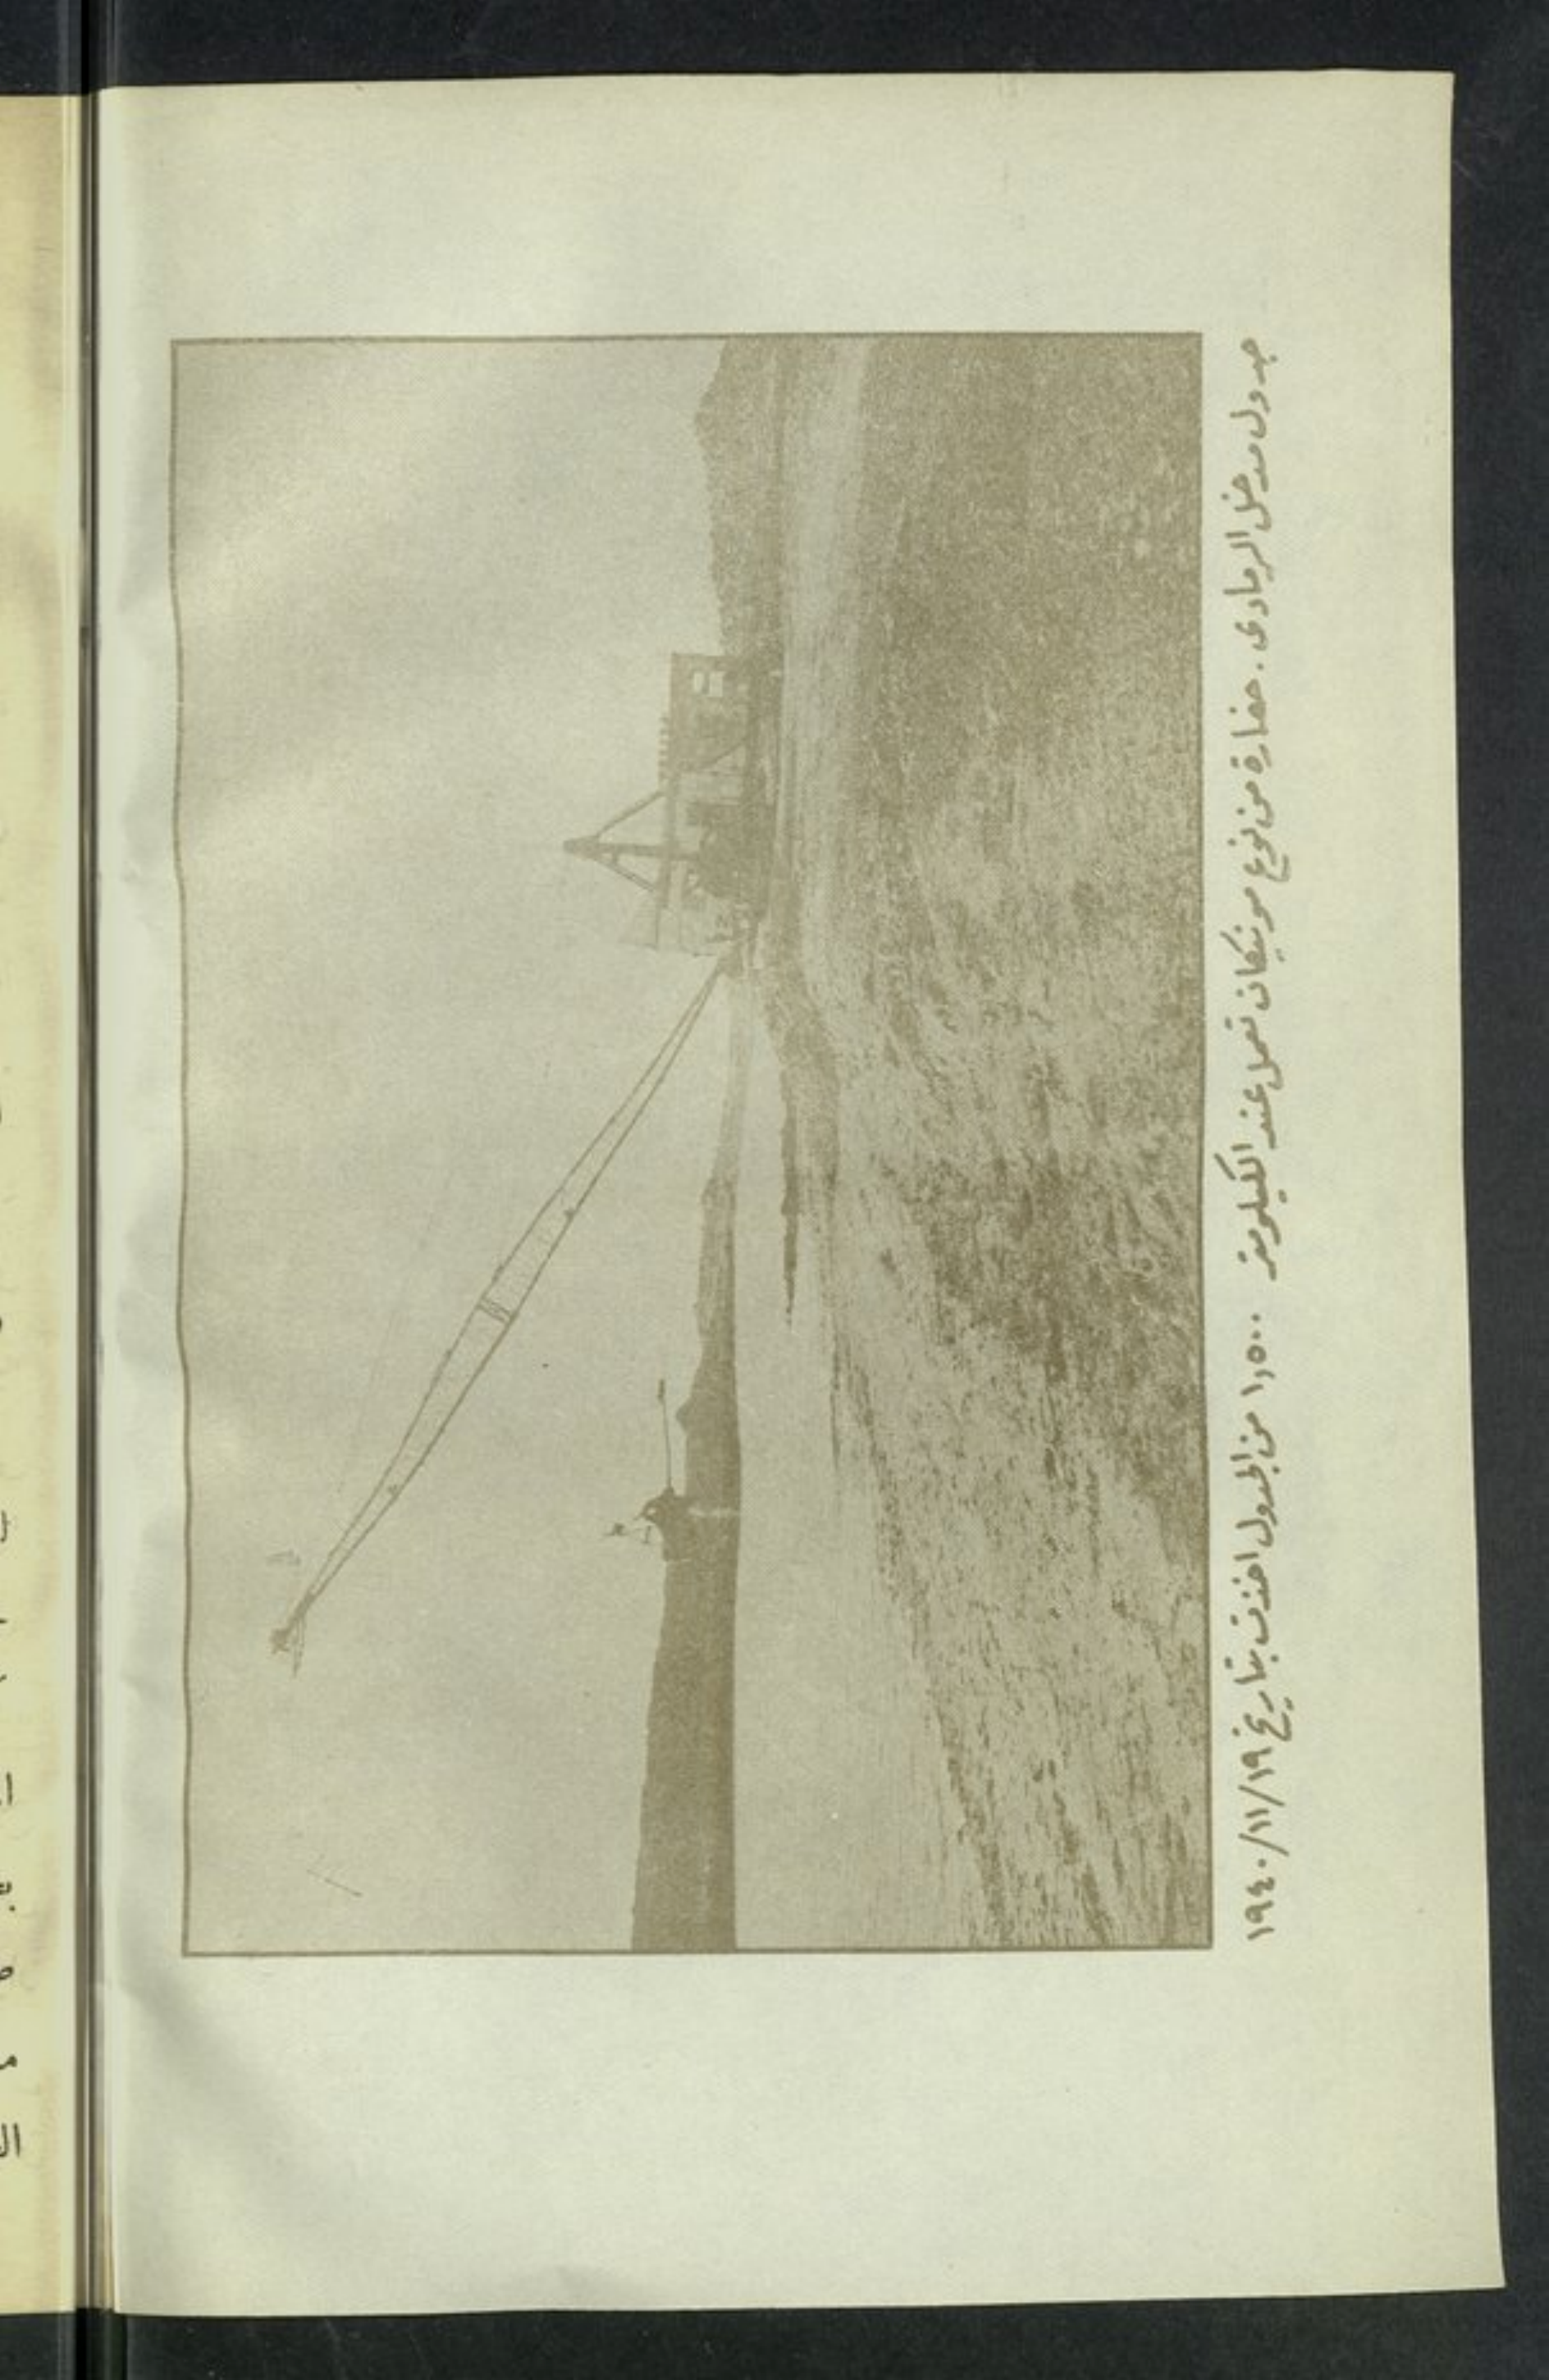 جدول مدخل الرمادي . حفارة من نوع مونيكان تعمل عند الكيلومتر ١,٥٠٠ من الجدول اخذت بتاريخ ١٩٤٠/١١/١٩